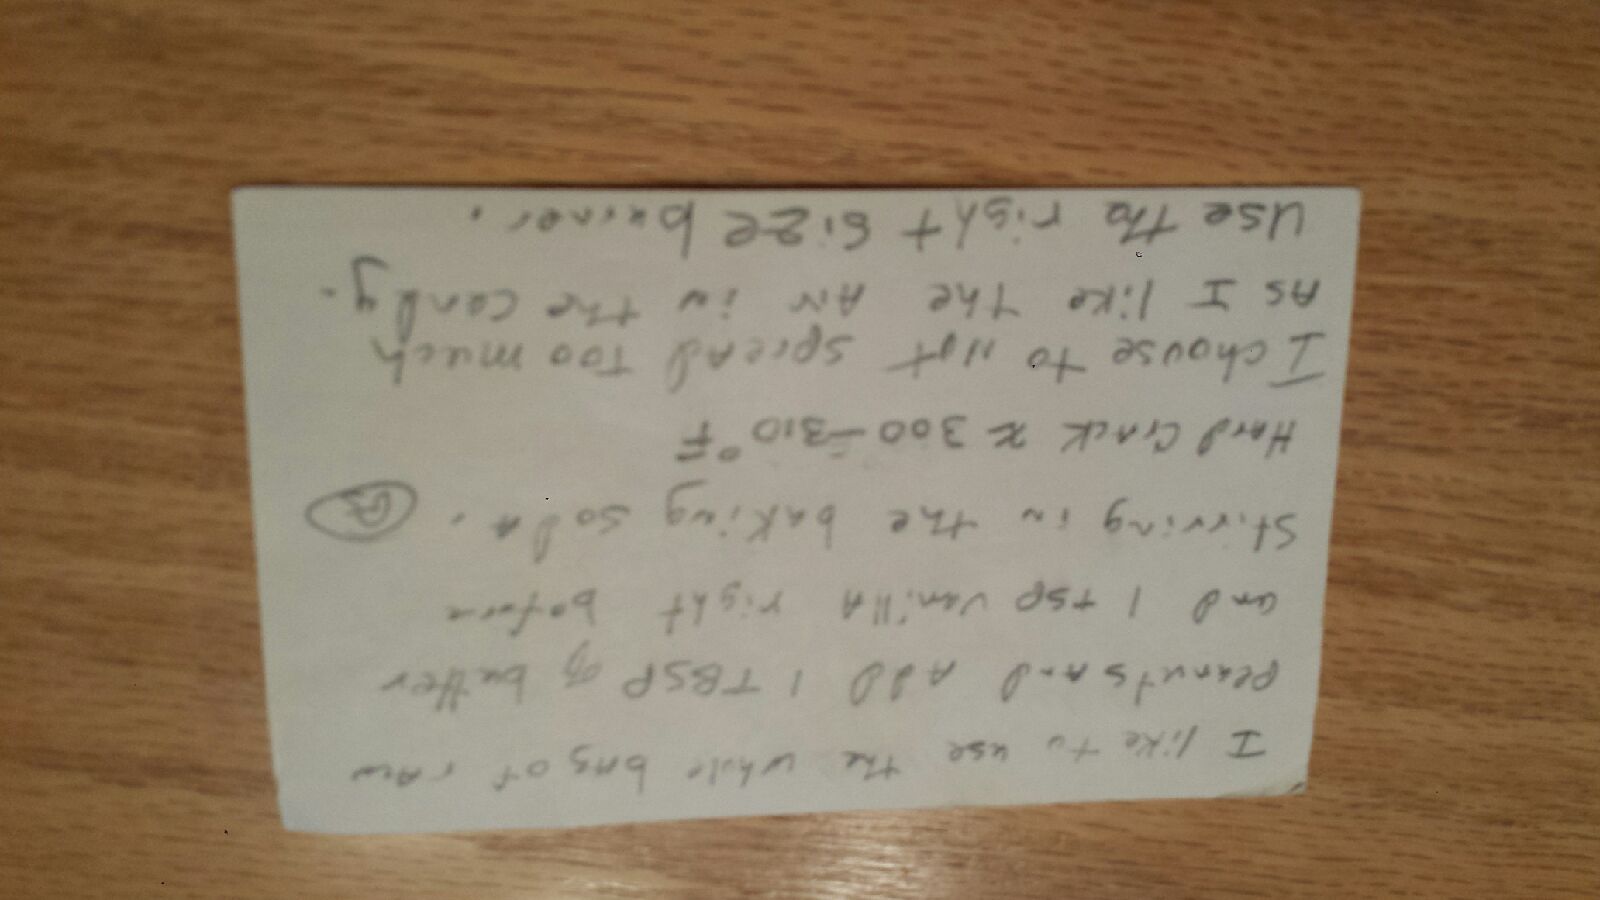 I like to use the whole bag of raw
peanuts and ADD 1 TBSP of butter
and 1 tsp vanilla right before
Stirring in the baking soda.
Hard Crack ≈ 300-310 °F
I choose to not spread too much
As I like the Air in the candy.
Use the right size burner.